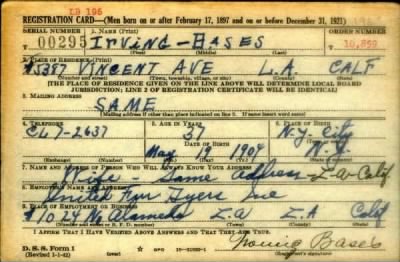 LB 195
REGISTRATION CARD—(Men born on or after February 17, 1897 and on or before December 31, 1921)
SERIAL NUMBER 1. NAME (Print) ORDER NUMBER
U 00295 IRVING — BASES 10,859
(First) (Middle) (Last)
2. PLACE OF RESIDENCE (Print)
5387 VINCENT AVE L.A. CALF
(Number and street) (Town, township, village, or city) (County) (State)
[THE PLACE OF RESIDENCE GIVEN ON THE LINE ABOVE WILL DETERMINE LOCAL BOARD
JURISDICTION; LINE 2 OF REGISTRATION CERTIFICATE WILL BE IDENTICAL]
3. MAILING ADDRESS
SAME
[Mailing address if other than place indicated on line 2. If same insert word same]
4. TELEPHONE 5. AGE IN YEARS 6. PLACE OF BIRTH
CL 7-2637 37 N.Y. City
DATE OF BIRTH
May 19 1904 N.Y.
(Exchange) (Number) (Mo.) (Day) (Yr.) (State or country)
7. NAME AND ADDRESS OF PERSON WHO WILL ALWAYS KNOW YOUR ADDRESS
Same Address L.A. Calif
8. EMPLOYER'S NAME AND ADDRESS
Fur Dyers Inc
9. PLACE OF EMPLOYMENT OR BUSINESS
1024 No Alameda L.A. L.A. Calif
(Number and street or R. F. D. number) (Town) (County) (State)
I AFFIRM THAT I HAVE VERIFIED ABOVE ANSWERS AND THAT THEY ARE TRUE.
D. S. S. Form 1
(Revised 1-1-42) GPO Irving Bases